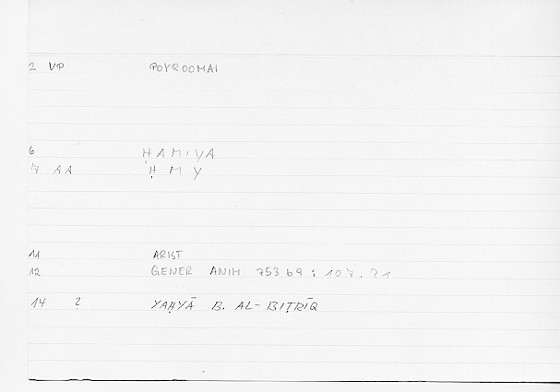 2 VP POYROOMAI
6 ḤAMIYA
7 AA Ḥ M Y
11 ARIST
12 GENER ANIM 753 b9 : 107.21
14 ? YAḤYĀ B. AL-BIṬRĪQ